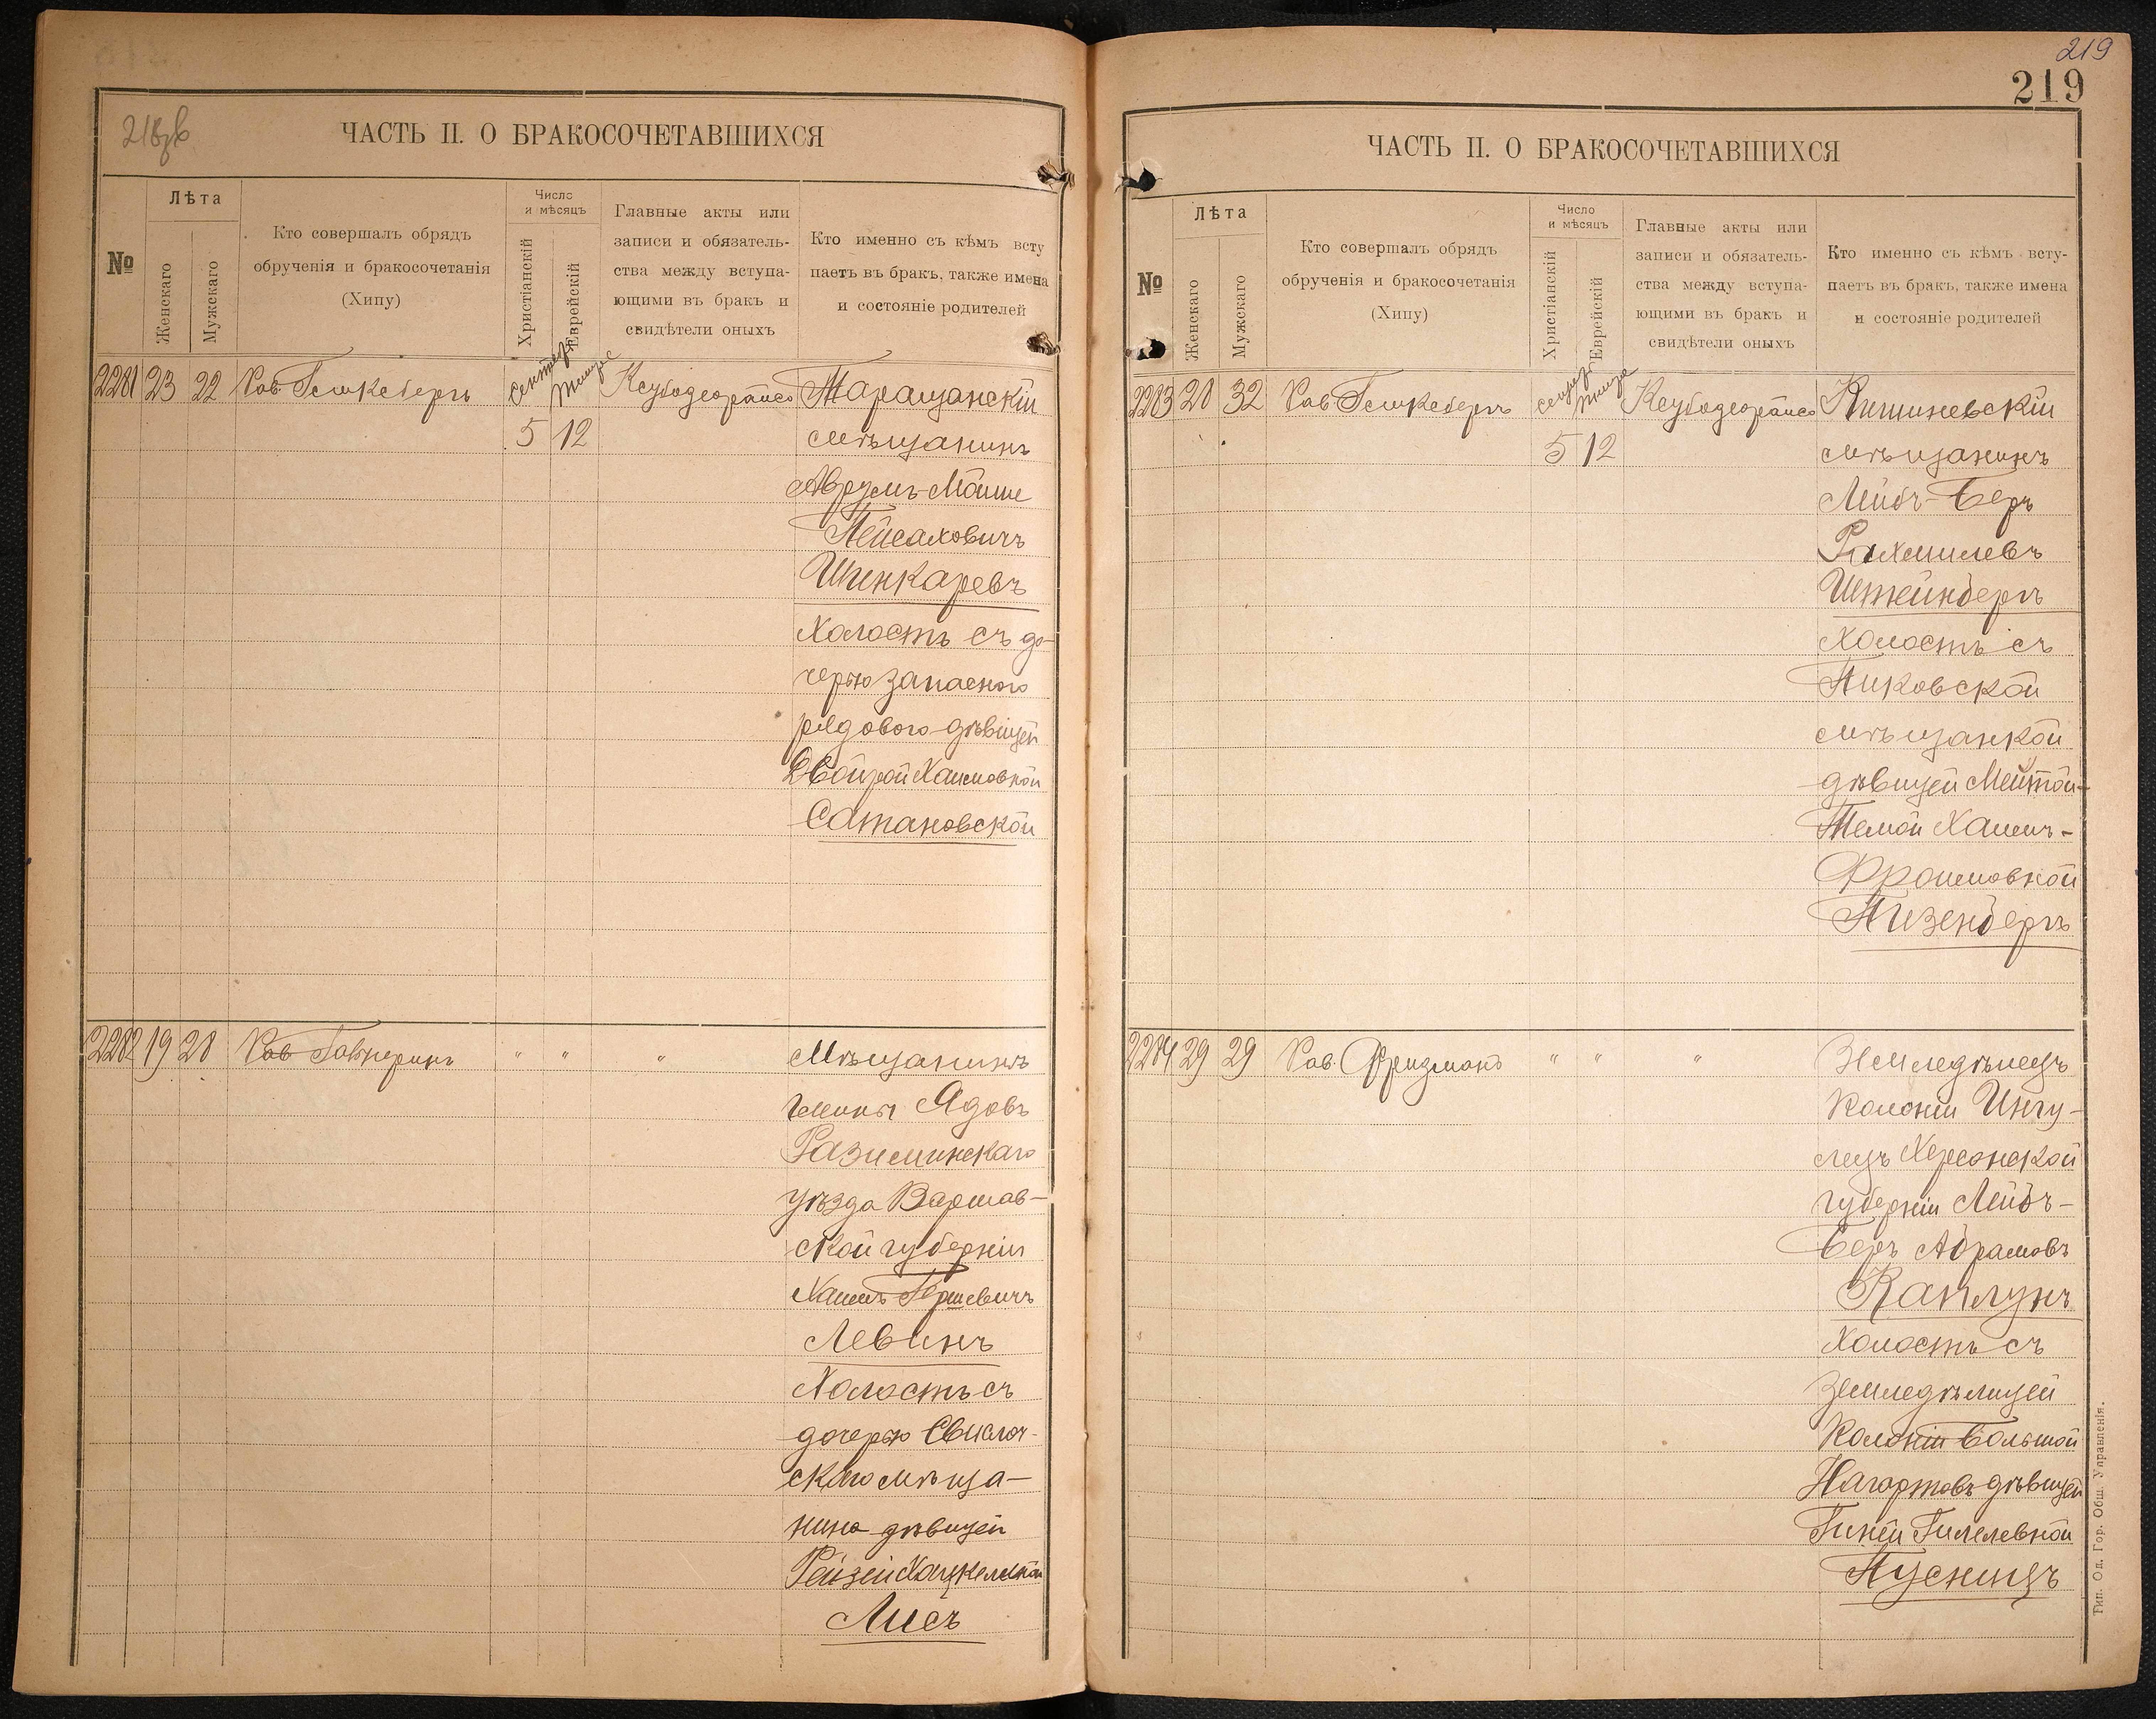 218 об
ЧАСТЬ II. О БРАКОСОЧЕТАВШИХСЯ
№
Лѣта
Женскаго
Мужскаго
Кто совершалъ обрядъ
обрученія и бракосочетанія
(Хипу)
Число
и мѣсяцъ
Христіанскій
Еврейскій
Главные акты или
записи и обязатель-
ства между вступа-
ющими въ бракъ и
свидѣтели оныхъ
Кто именно съ кѣмъ всту
паетъ въ бракъ, также имена
и состояніе родителей
2281 23 22 Рав. сентяб. тишре Таращанскій
5 12 мѣщанинъ
Аврумъ-Мойше
Пейсаховичъ
Шинкаревъ
Холостъ съ до-
черью запаснаго
рядового дѣвицей
Двойрой Хаимовной
Сатановской
2282 19 20 Рав " " " Мѣщанинъ
гмины Ядовъ
Разиминскаго
уѣзда Варшав-
ской губерніи
Хаимъ Гершевичъ
Левинъ
Холостъ съ
дочерью Свислоч-
скаго мѣща-
нина дѣвицей
Рейзей Хацкелевной
Лисъ
219
219
ЧАСТЬ II. О БРАКОСОЧЕТАВШИХСЯ
№
Лѣта
Женскаго
Мужскаго
Кто совершалъ обрядъ
обрученія и бракосочетанія
(Хипу)
Число
и мѣсяцъ
Христіанскій
Еврейскій
Главные акты или
записи и обязатель-
ства между вступа-
ющими въ бракъ и
свидѣтели оныхъ
Кто именно съ кѣмъ всту-
паетъ въ бракъ, также имена
и состояніе родителей
2283 28 32 Рав. сентяб. тишре Кишиневскій
5 12 мѣщанинъ
Лейбъ-Беръ
Рахмилевъ
Штейнбергъ
холостъ съ
Пиковской
мѣщанкой
дѣвицей
Темой Хаимъ-
Фроимовной
Айзенбергъ
2284 29 29 Рав. Фридманъ " " " Земледѣлецъ
колоніи Ингу-
лецъ Херсонской
губерніи Лейбъ-
Беръ Абрамовъ
Каплунъ
холостъ съ
земледѣлицей
колоніи Большой
Нагартовъ дѣвицей
Гилелевной
Пусницъ
Тип. Од. Гор. Общ. Управленія.